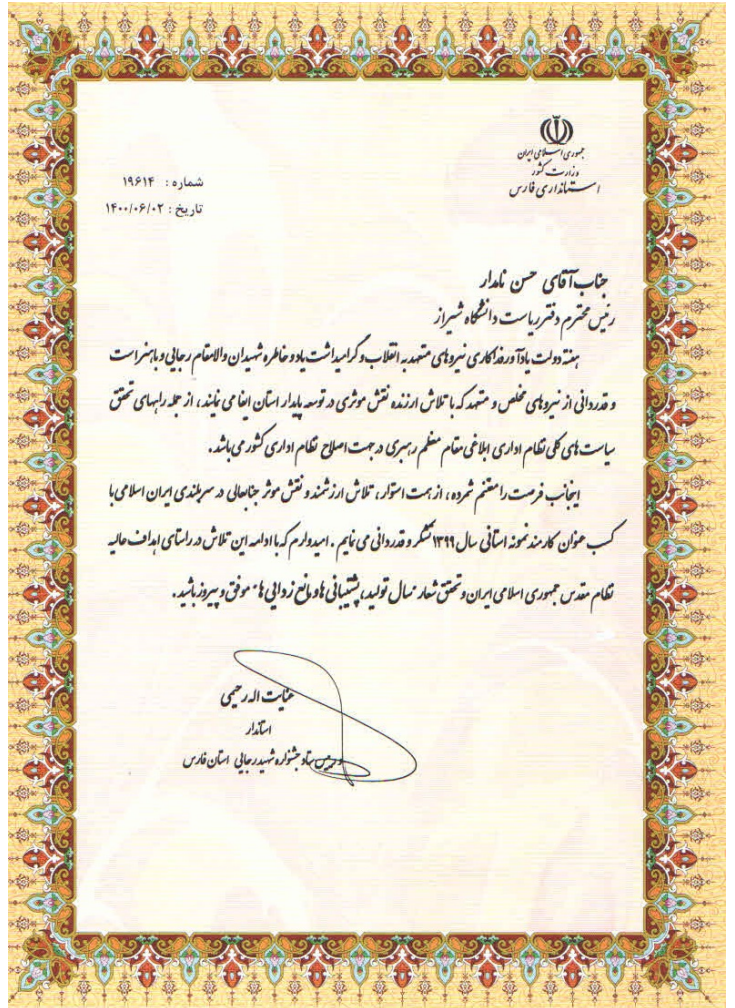 جمهوری اسلامی ایران
وزارت کشور
استانداری فارس
شماره : ۱۹۶۱۴
تاریخ : ۱۴۰۰/۰۶/۰۲
جناب آقای حسن نامدار
رئیس محترم دفتر ریاست دانشگاه شیراز
هفته دولت یادآور فداکاری نیروهای متعهد به انقلاب و گرامیداشت یاد و خاطره شهیدان والامقام رجایی و باهنر است
و قدردانی از نیروهای مخلص و متعهد که با تلاش ارزنده نقش موثری در توسعه پایدار استان ایفا می نمایند ، از جمله راههای تحقق
سیاست های کلی نظام اداری ابلاغی مقام معظم رهبری در جهت اصلاح نظام اداری کشور می باشد .
اینجانب فرصت را مغتنم شمرده ، از همت استوار ، تلاش ارزشمند و نقش موثر جنابعالی در سربلندی ایران اسلامی با
کسب عنوان کارمند نمونه استانی سال ۱۳۹۹ تشکر و قدردانی می نمایم . امیدوارم که با ادامه این تلاش در راستای اهداف عالیه
نظام مقدس جمهوری اسلامی ایران و تحقق شعار "سال تولید، پشتیبانی ها و مانع زدایی ها" موفق و پیروز باشید .
عنایت اله رحیمی
استاندار
و رئیس ستاد جشنواره شهید رجایی استان فارس